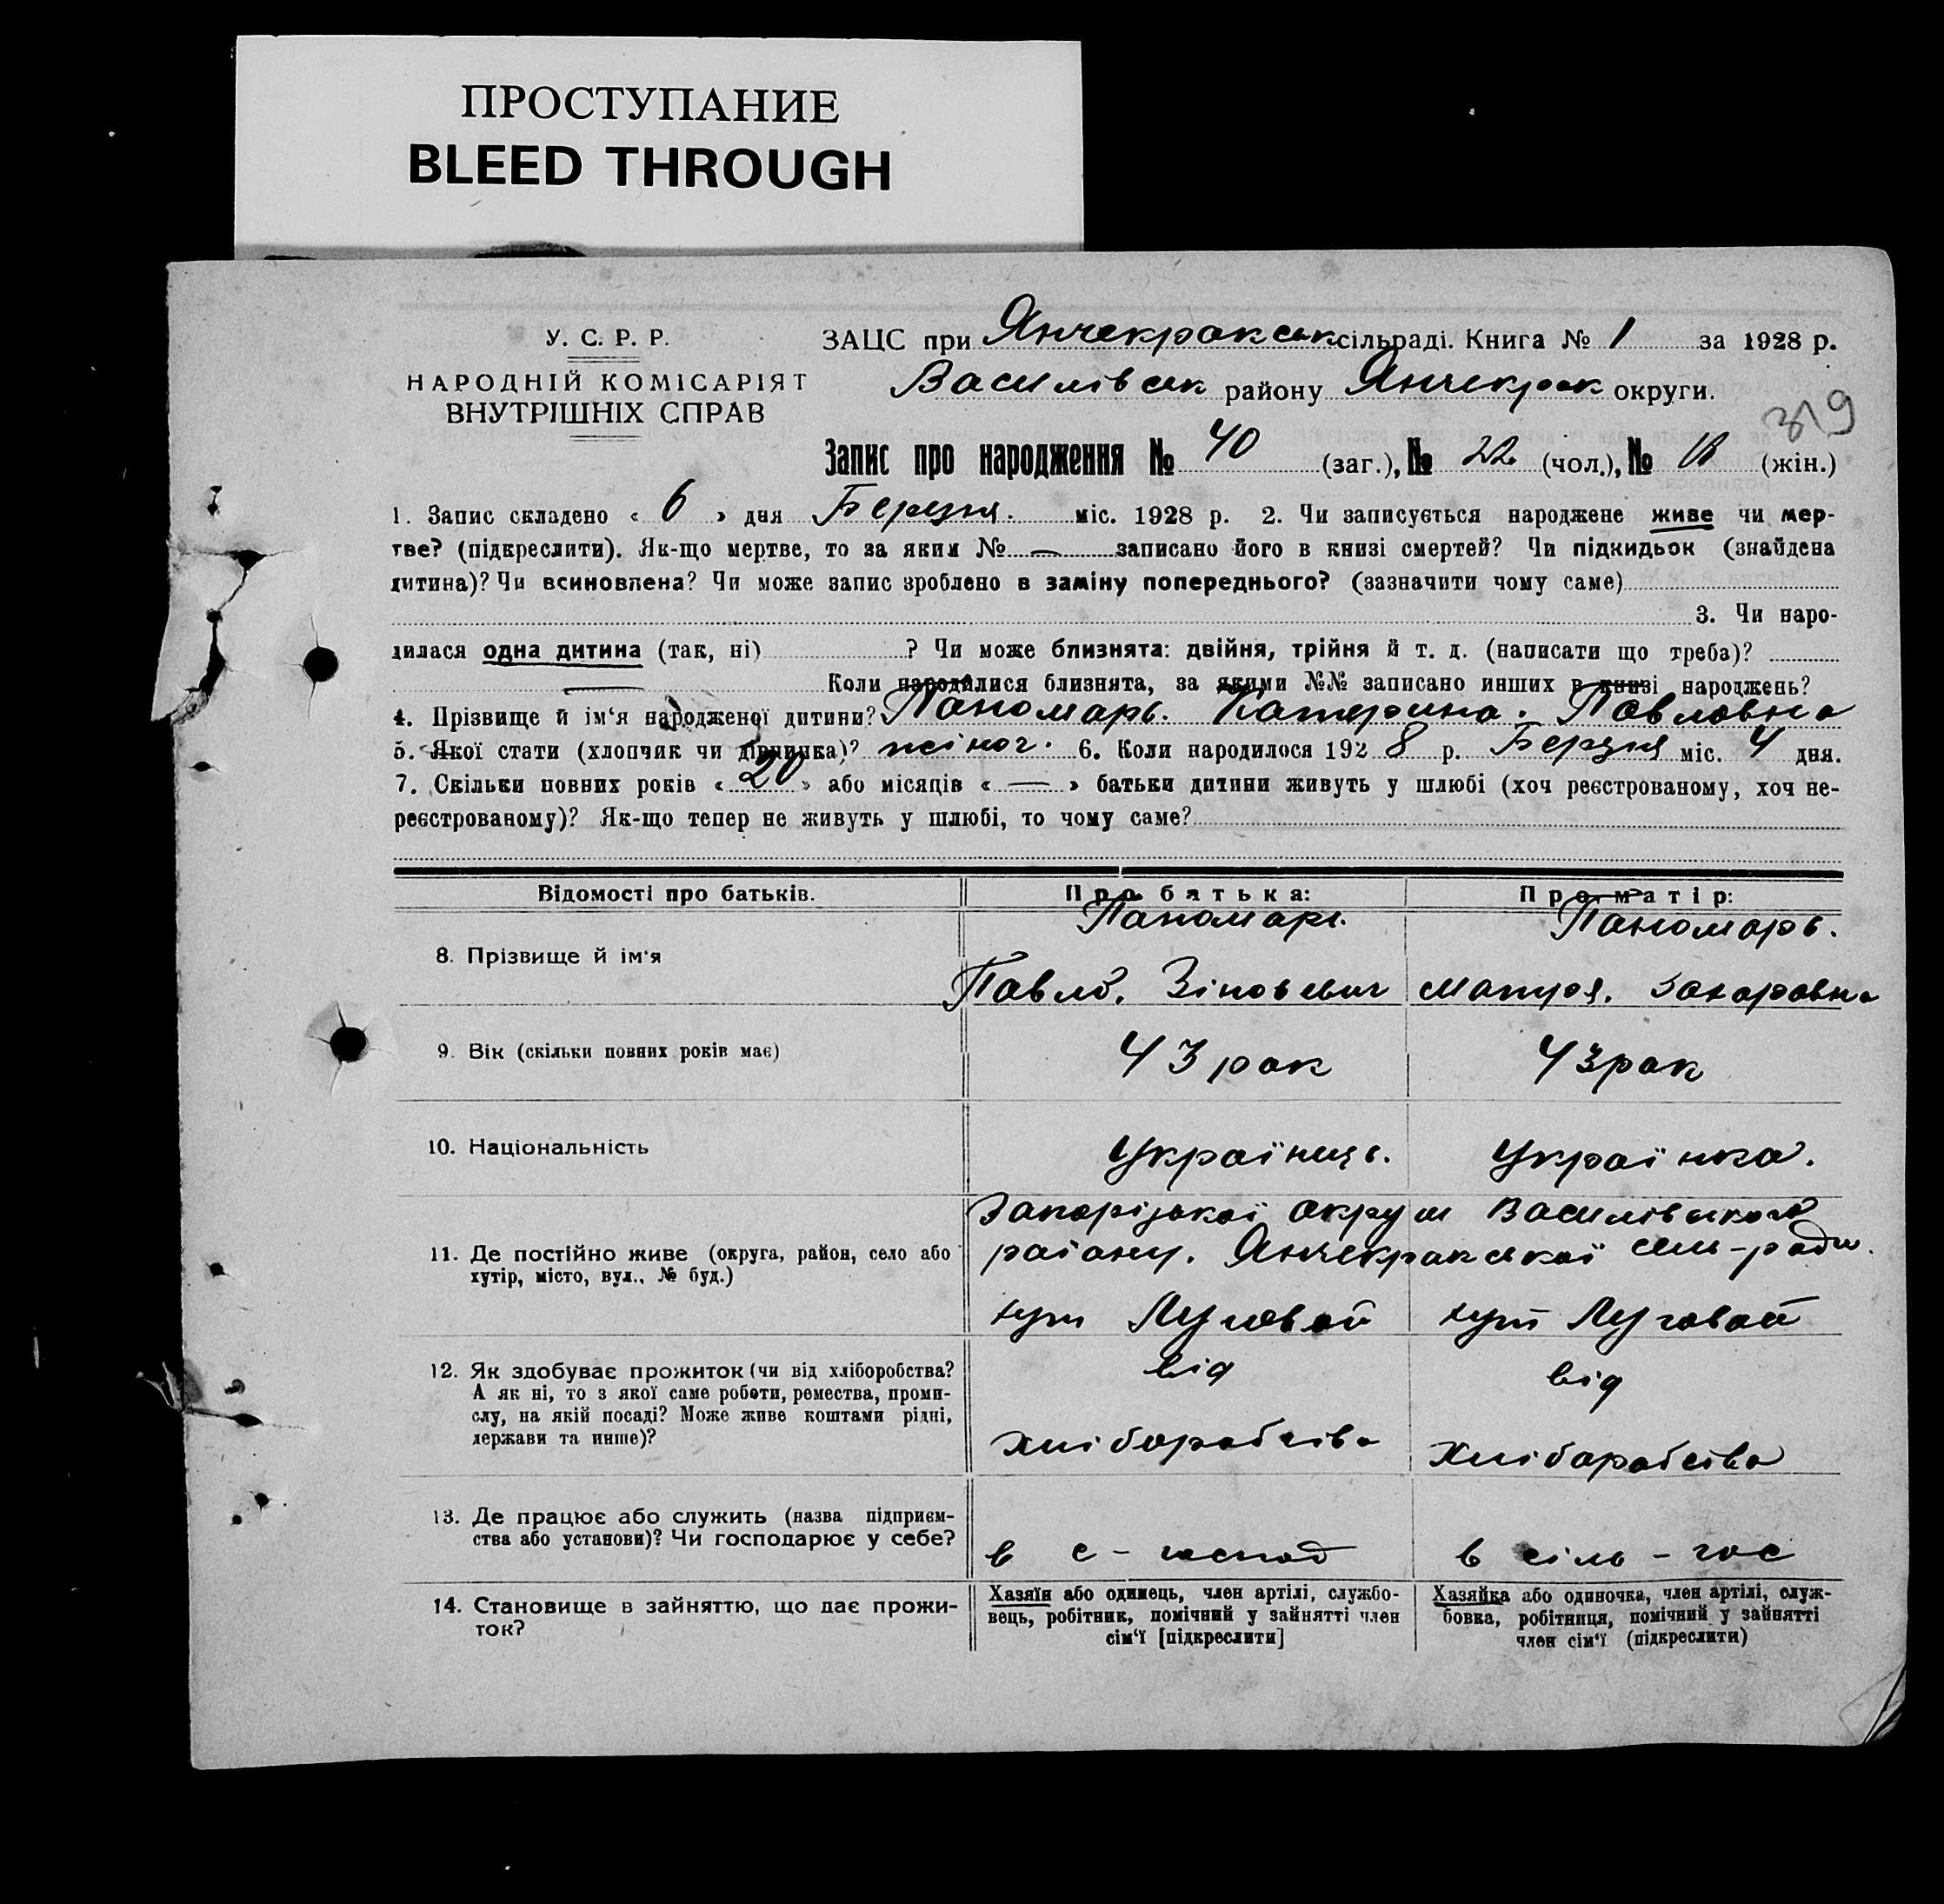 ПРОСТУПАНИЕ
BLEED THROUGH
У. С. Р. Р.
НАРОДНІЙ КОМІСАРІЯТ
ВНУТРІШНІХ СПРАВ
ЗАЦС при Янчекракськ сільраді. Книга № 1 за 1928 р.
Василівськ району Янчекрак округи.
319
Запис про народження № 40 (заг.), № 22 (чол.), № 18 (жін.)
1. Запис складено « 6 » дня Березня. міс. 1928 р. 2. Чи записується народжене живе чи мер-
тве? (підкреслити). Як-що мертве, то за яким № — записано його в книзі смертей? Чи підкидьок (знайдена
дитина)? Чи всиновлена? Чи може запис зроблено в заміну попереднього? (зазначити чому саме)
3. Чи наро-
дилася одна дитина (так, ні) ? Чи може близнята: двійня, трійня й т. д. (написати що треба)?
— Коли народилися близнята, за якими №№ записано инших в книзі народжень?
4. Прізвище й ім‘я народженої дитини? Паномарь. Катерина. Павловна
5. Якої стати (хлопчик чи дівчинка)? жіноч. 6. Коли народилося 192 8 р. Березня міс. 4 дня.
7. Скільки повних років « 20 » або місяців « — » батьки дитини живуть у шлюбі (хоч реєстрованому, хоч не-
реєстрованому)? Як-що тепер не живуть у шлюбі, то чому саме?
Відомості про батьків. Про батька: Про матір:
8. Прізвище й ім‘я
Паномарь. Паномарь.
Павло. Зіновевич Мотря. Захаровна
9. Вік (скільки повних років має) 43 рок 43 рок
10. Національність Українець. Українка.
11. Де постійно живе (округа, район, село або
хутір, місто, вул., № буд.)
Запорізької округи Василівського
району. Янчекракської сель-ради.
хут Луговой хут Луговой
12. Як здобуває прожиток (чи від хліборобства?
А як ні, то з якої саме роботи, ремества, проми-
слу, на якій посаді? Може живе коштами рідні,
держави та инше)?
від від
хліборобсіва хліборобсіва
13. Де працює або служить (назва підприєм-
ства або установи)? Чи господарює у себе?
в с - господ в сіль - гос
14. Становище в зайняттю, що дає прожи-
ток?
Хазяїн або одинець, член артілі, службо-
вець, робітник, помічний у зайнятті член
сім‘ї [підкреслити]
Хазяйка або одиночка, член артілі, служ-
бовка, робітниця, помічний у зайнятті
член сім‘ї (підкреслити)